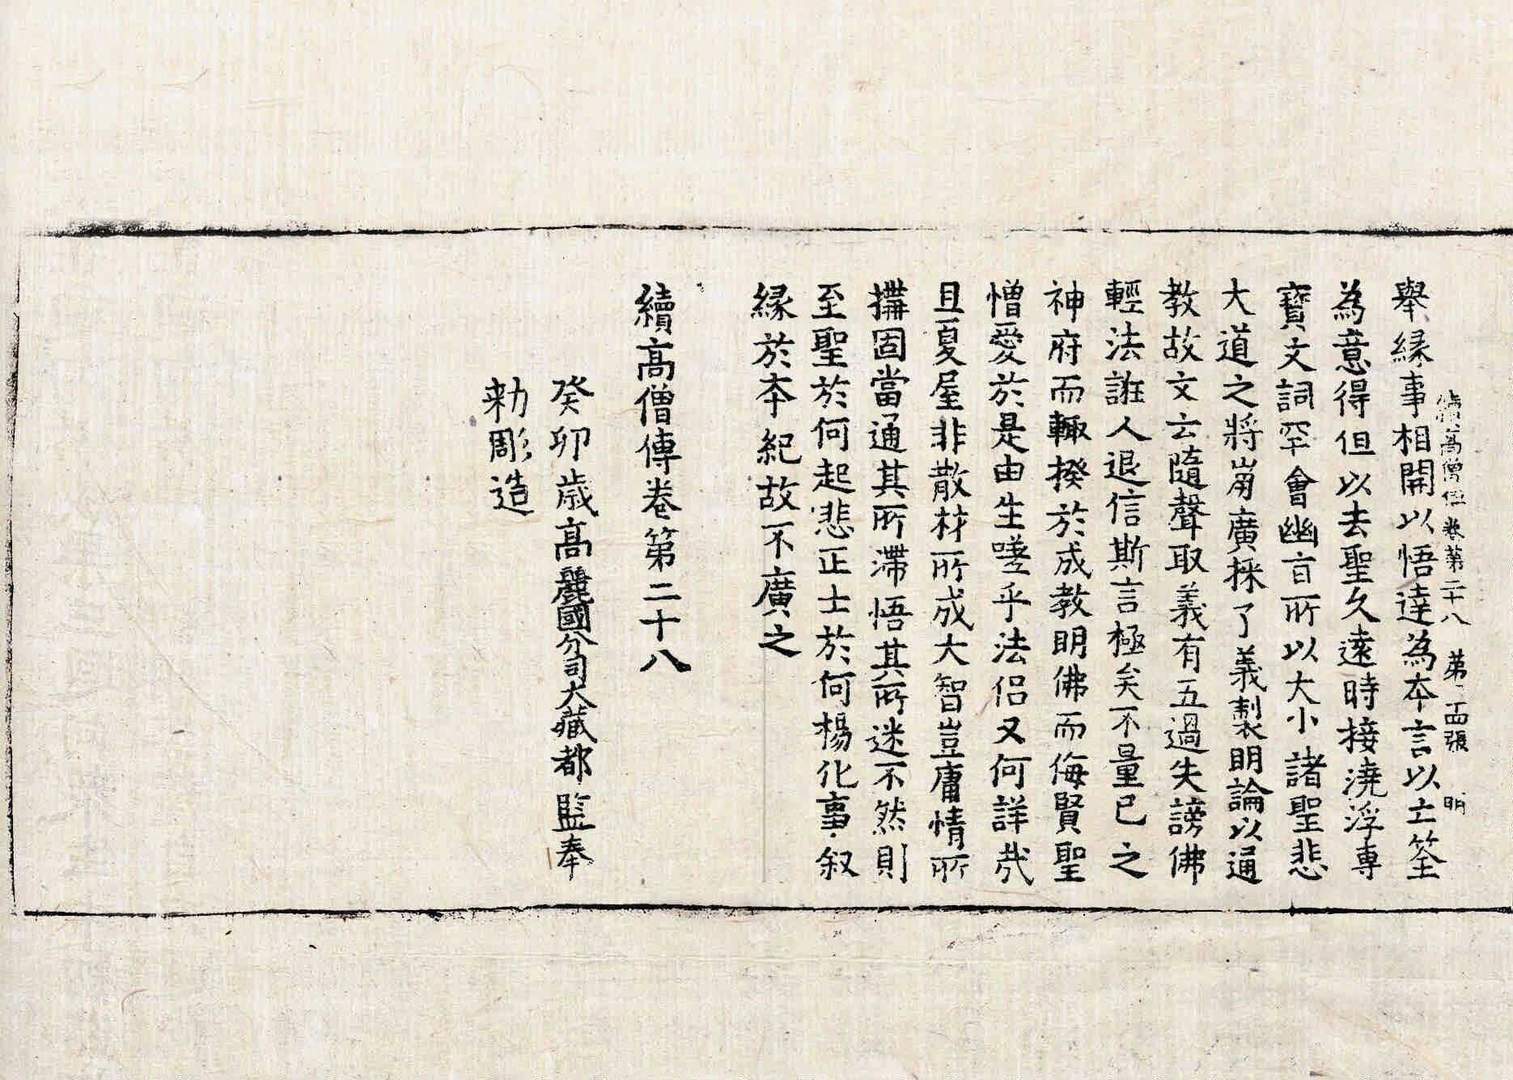 續高僧傳卷第二十八 第 面張 明
舉縁事相開以悟達為本言以土筌
為意得但以去聖久遠時接澆浮專
寳文詞罕㑹幽旨所以大小諸聖悲
大道之將崩廣採了義製明論以通
教故文云隨聲取義有五過失謗佛
輕法誑人退信斯言極矣不量已之
神府而輙揆於成教明佛而侮賢聖
憎愛於是由生嗟乎法侣又何詳㢤
且夏屋非散材所成大智豈庸情所
搆固當通其所滯悟其所迷不然則
至聖於何起悲正士於何揚化事叙
縁於本紀故不廣之
續高僧傳卷第二十八
癸卯歲高麗國分司大藏都監奉
勅彫造